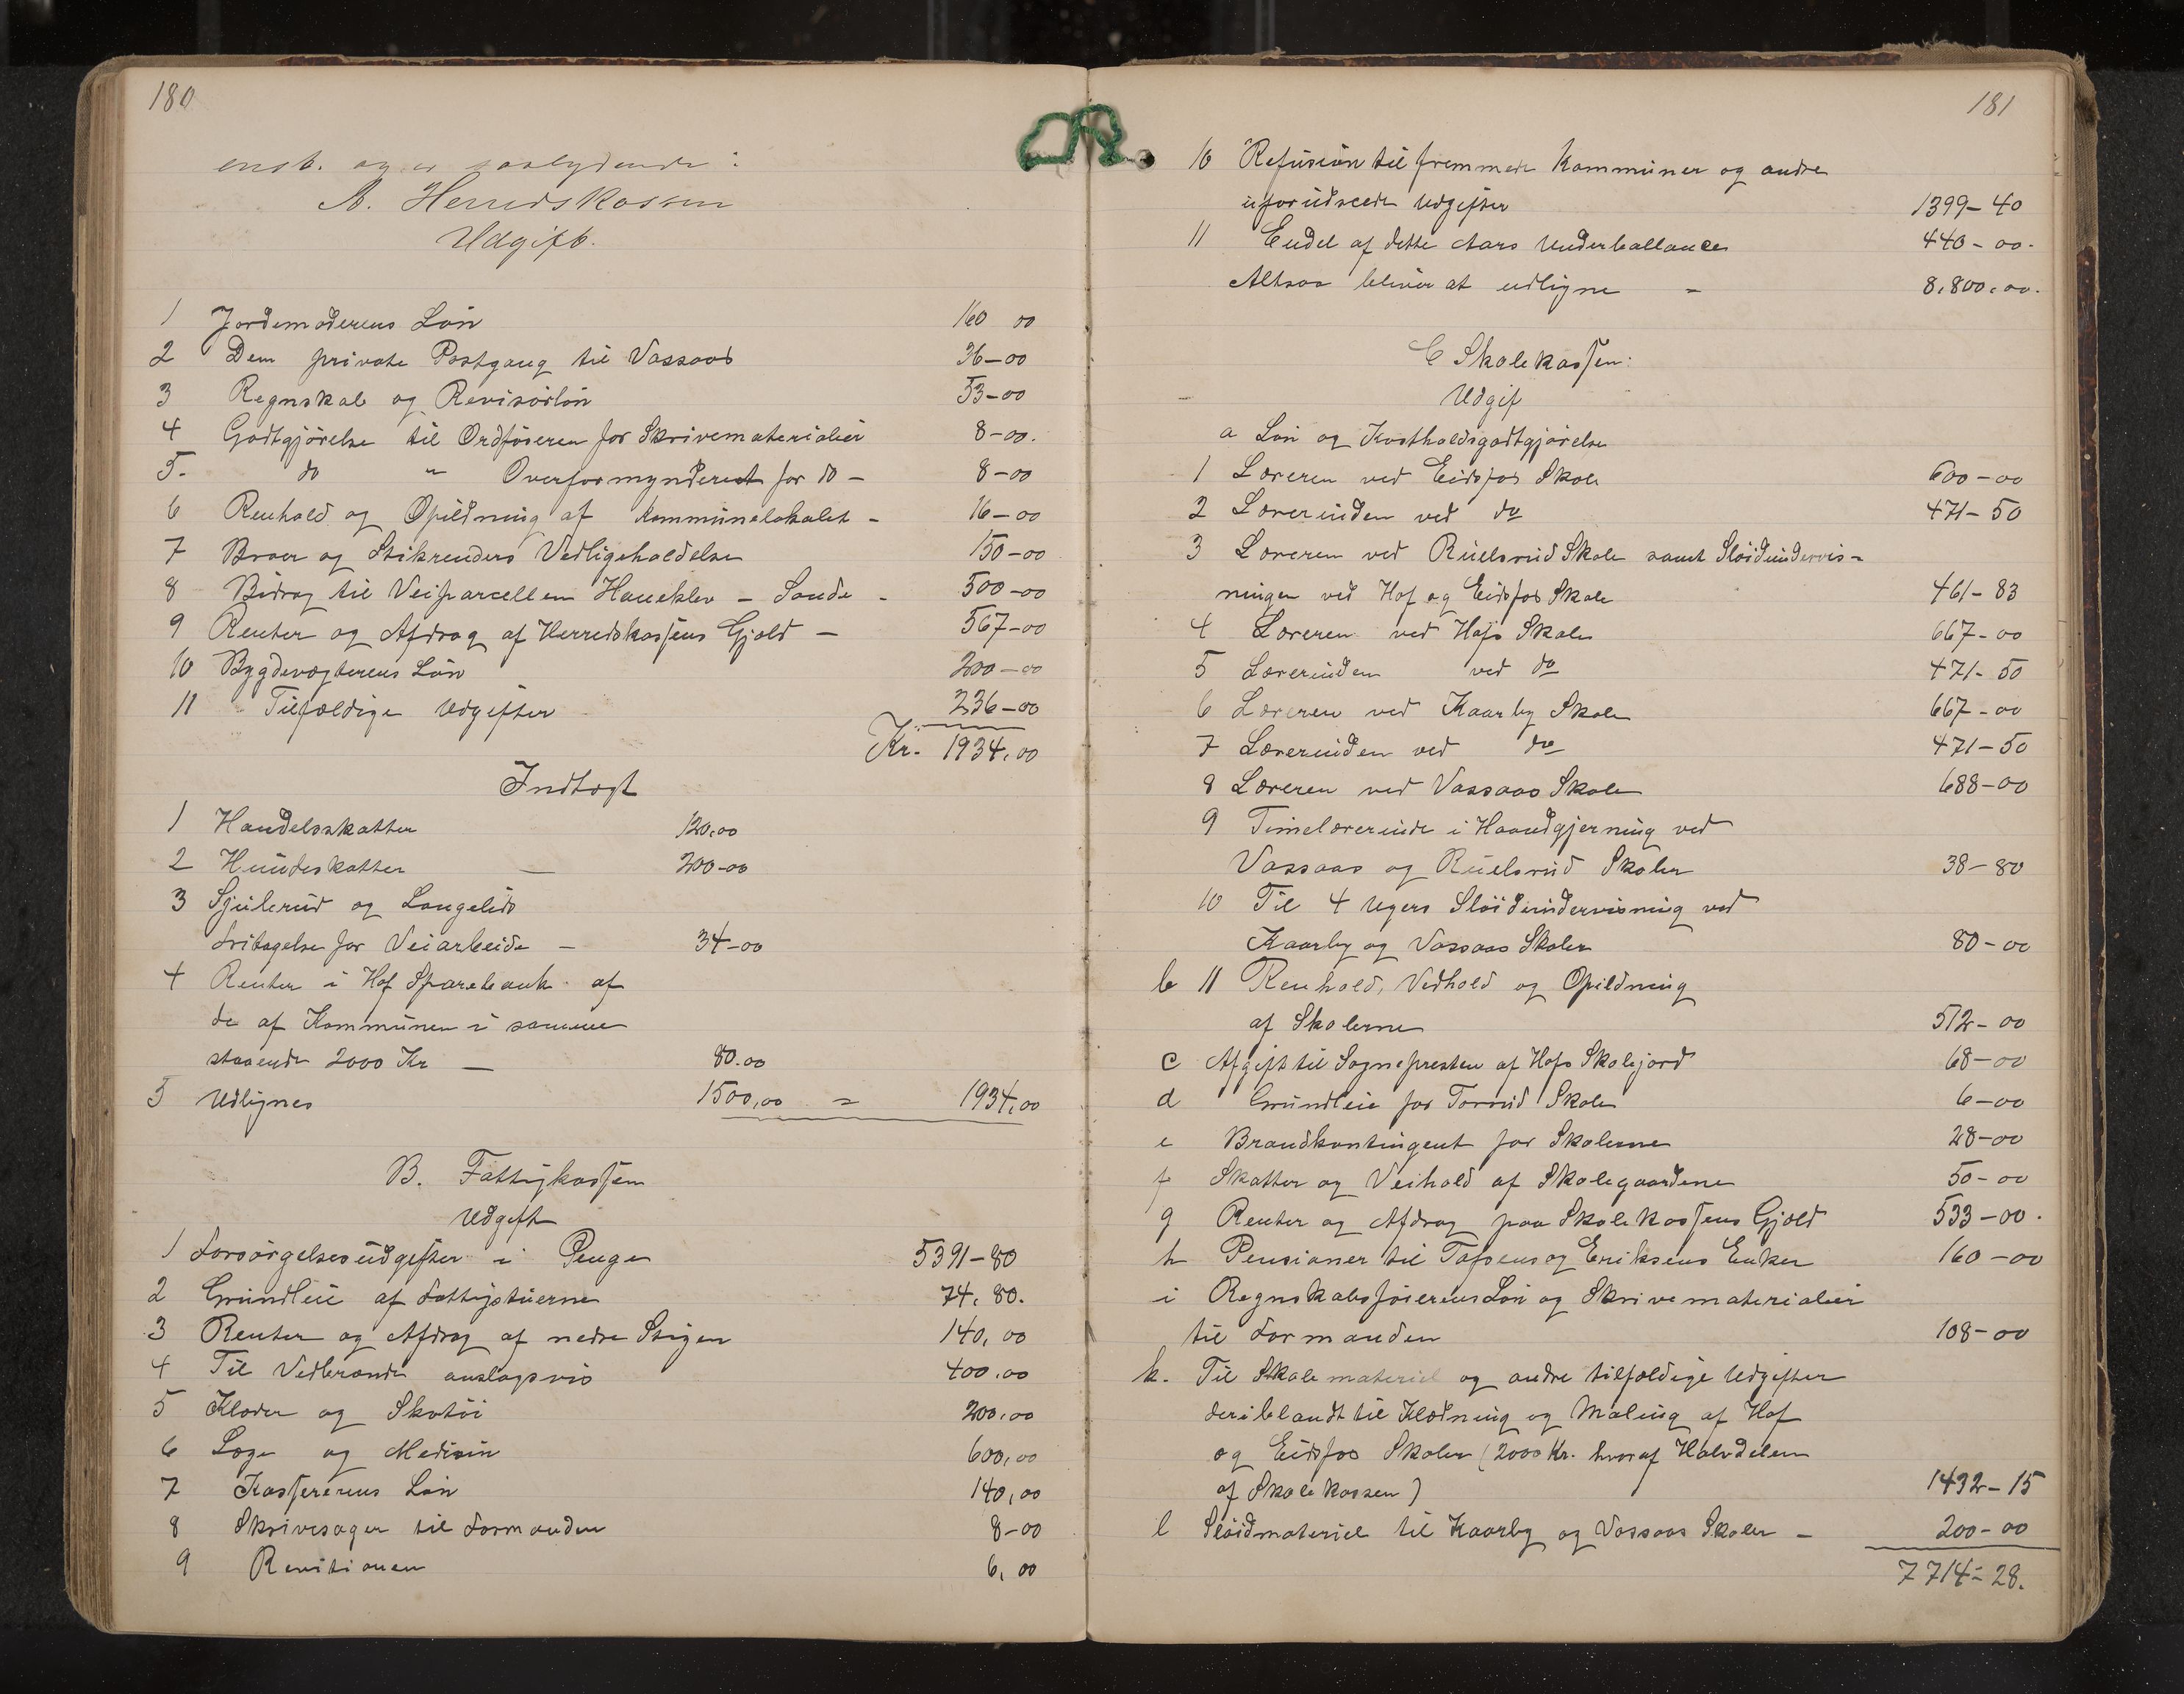 180
enst. og er saalydende:
A. Herredskassen
Udgift.
1 Jordemoderens Løn 160 00
2 Den private Postgang til Vassaas 36-00
3 Regnskab og Revisorløn 53-00
4 Godtgjørelse til Ordføreren for Skrivematerialier 8-00.
5. do " Overformynderiet for do - 8-00
6 Renhold og Opildning af Kommunelokalet - 16-00
7 Broer og Stikrenders Vedligeholdelse 150-00
8 Bidrag til Veiparcellen Haneklev - Sande - 500-00
9 Renter og Afdrag af Herredskassens Gjæld - 567-00
10 Bygdevægterens Løn 200-00
11 Tilfældige Udgifter 236-00
Kr. 1934,00
Indtægt
1 Handelsskatten 120,00
2 Hundeskatten - 200-00
3 Sjulerud og Langelids
Fritagelse for Veiarbeide - 34-00
4 Renter i Hof Sparebank af
de af Kommunen i samme
staaende 2000 Kr - 80.00
5 Udlignes 1500,00 = 1934,00
B. Fattigkassen
Udgift
1 Forsørgelsesudgifter i Penge 5391-80
2 Grundleie af Fattigstuerne 74,80.
3 Renter og Afdrag af nedre Stigen 140,00
4 Til Vedbrænde anslagsvis 400.00
5 Klæder og Skotøi 200,00
6 Læge og Medicin 600,00
7 Kassererens Løn 140,00
8 Skrivesager til Formanden 8-00
9 Revisionen 6,00
181
10 Refusion til fremmede Kommuner og andre
uforudseede Udgifter 1399-40
11 Endel af dette Aars Underballance 440-00.
Altsaa bliver at udligne = 8,800,00.
C Skolekassen:
Udgif
a Løn og Kostholdsgodtgjørelse
1 Læreren ved Eidsfos Skole 600-00
2 Lærerinden ved do 471-50
3 Læreren ved Ruelsrud Skole samt Sløidundervis-
ningen ved Hof og Eidsfos Skole 461-83
4 Læreren ved Hofs Skole 667-00
5 Lærerinden ved do 471-50
6 Læreren ved Kaarby Skole 667-00
7 Lærerinden ved do 471-50
8 Læreren ved Vassaas Skole 688-00
9 Timelærerinde i Haandgjerning ved
Vassaas og Ruelsrud Skoler 38-80
10 Til 4 Ugers Sløidundervisning ved
Kaarby og Vassaas Skoler 80-00
b 11 Renhold, Vedhold og Opildning
af Skolerne 512-00
c Afgift til Sognepresten af Hofs Skolejord 68-00
d Grundleie for Torrud Skole 6-00
e Brandkontingent for Skolerne 28-00
f Skatter og Veihold af Skolegaardene 50-00
g Renter og Afdrag paa Skolekassens Gjæld 533-00.
h Pensioner til Tafsens og Eriksens Enker 160-00
i Regnskabsførerens Løn og Skrivematerialier
til Formanden 108-00
k. Til Skolemateriel og andre tilfældige Udgifter
deriblandt til Klædning og Maling af Hof
og Eidsfos Skoler (2000 Kr. hvoraf Halvdelen
af Skolekassen) 1432-15
l Sløidmateriel til Kaarby og Vassaas Skoler - 200-00
7714-28.